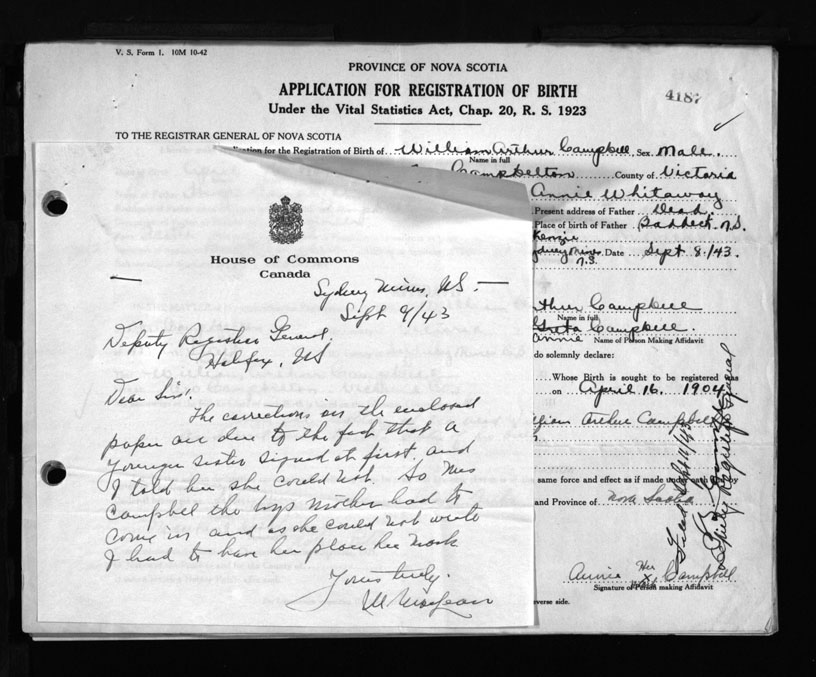 V. S. Form 1. 10M 10-42
PROVINCE OF NOVA SCOTIA
APPLICATION FOR REGISTRATION OF BIRTH
4187
Under the Vital Statistics Act, Chap. 20, R. S. 1923
TO THE REGISTRAR GENERAL OF NOVA SCOTIA
lication for the Registration of Birth of William Arthur Campbell Sex Male.
Name in full
Campbelton County of Victoria
Annie Whitaway
Present address of Father Dead
Place of birth of Father Baddeck. N.S.
Kenzie
ydney Mines Date Sept 8/43.
N.S.
thur Campbell
Name in full
Greta Campbell.
Annie Name of Person Making Affidavit
do solemnly declare:
Whose Birth is sought to be registered was
on April 16. 1904
Arthur Campbell
same force and effect as if made under oath by
and Province of Nova Scotia
Annie Her X Campbell
Signature of Person making Affidavit
everse side.
Deputy Registrar General
House of Commons
Canada
Sydney Mines, NS. —
Sept 9/43
Deputy Registrar General,
Halifax, NS
Dear Sir.
The corrections on the enclosed
paper are due to the fact that a
younger sister signed at first, and
I told her she could not. So Mrs
Campbell the boys mother had to
come in and as she could not write
I had to have her place her mark
Yours truly.